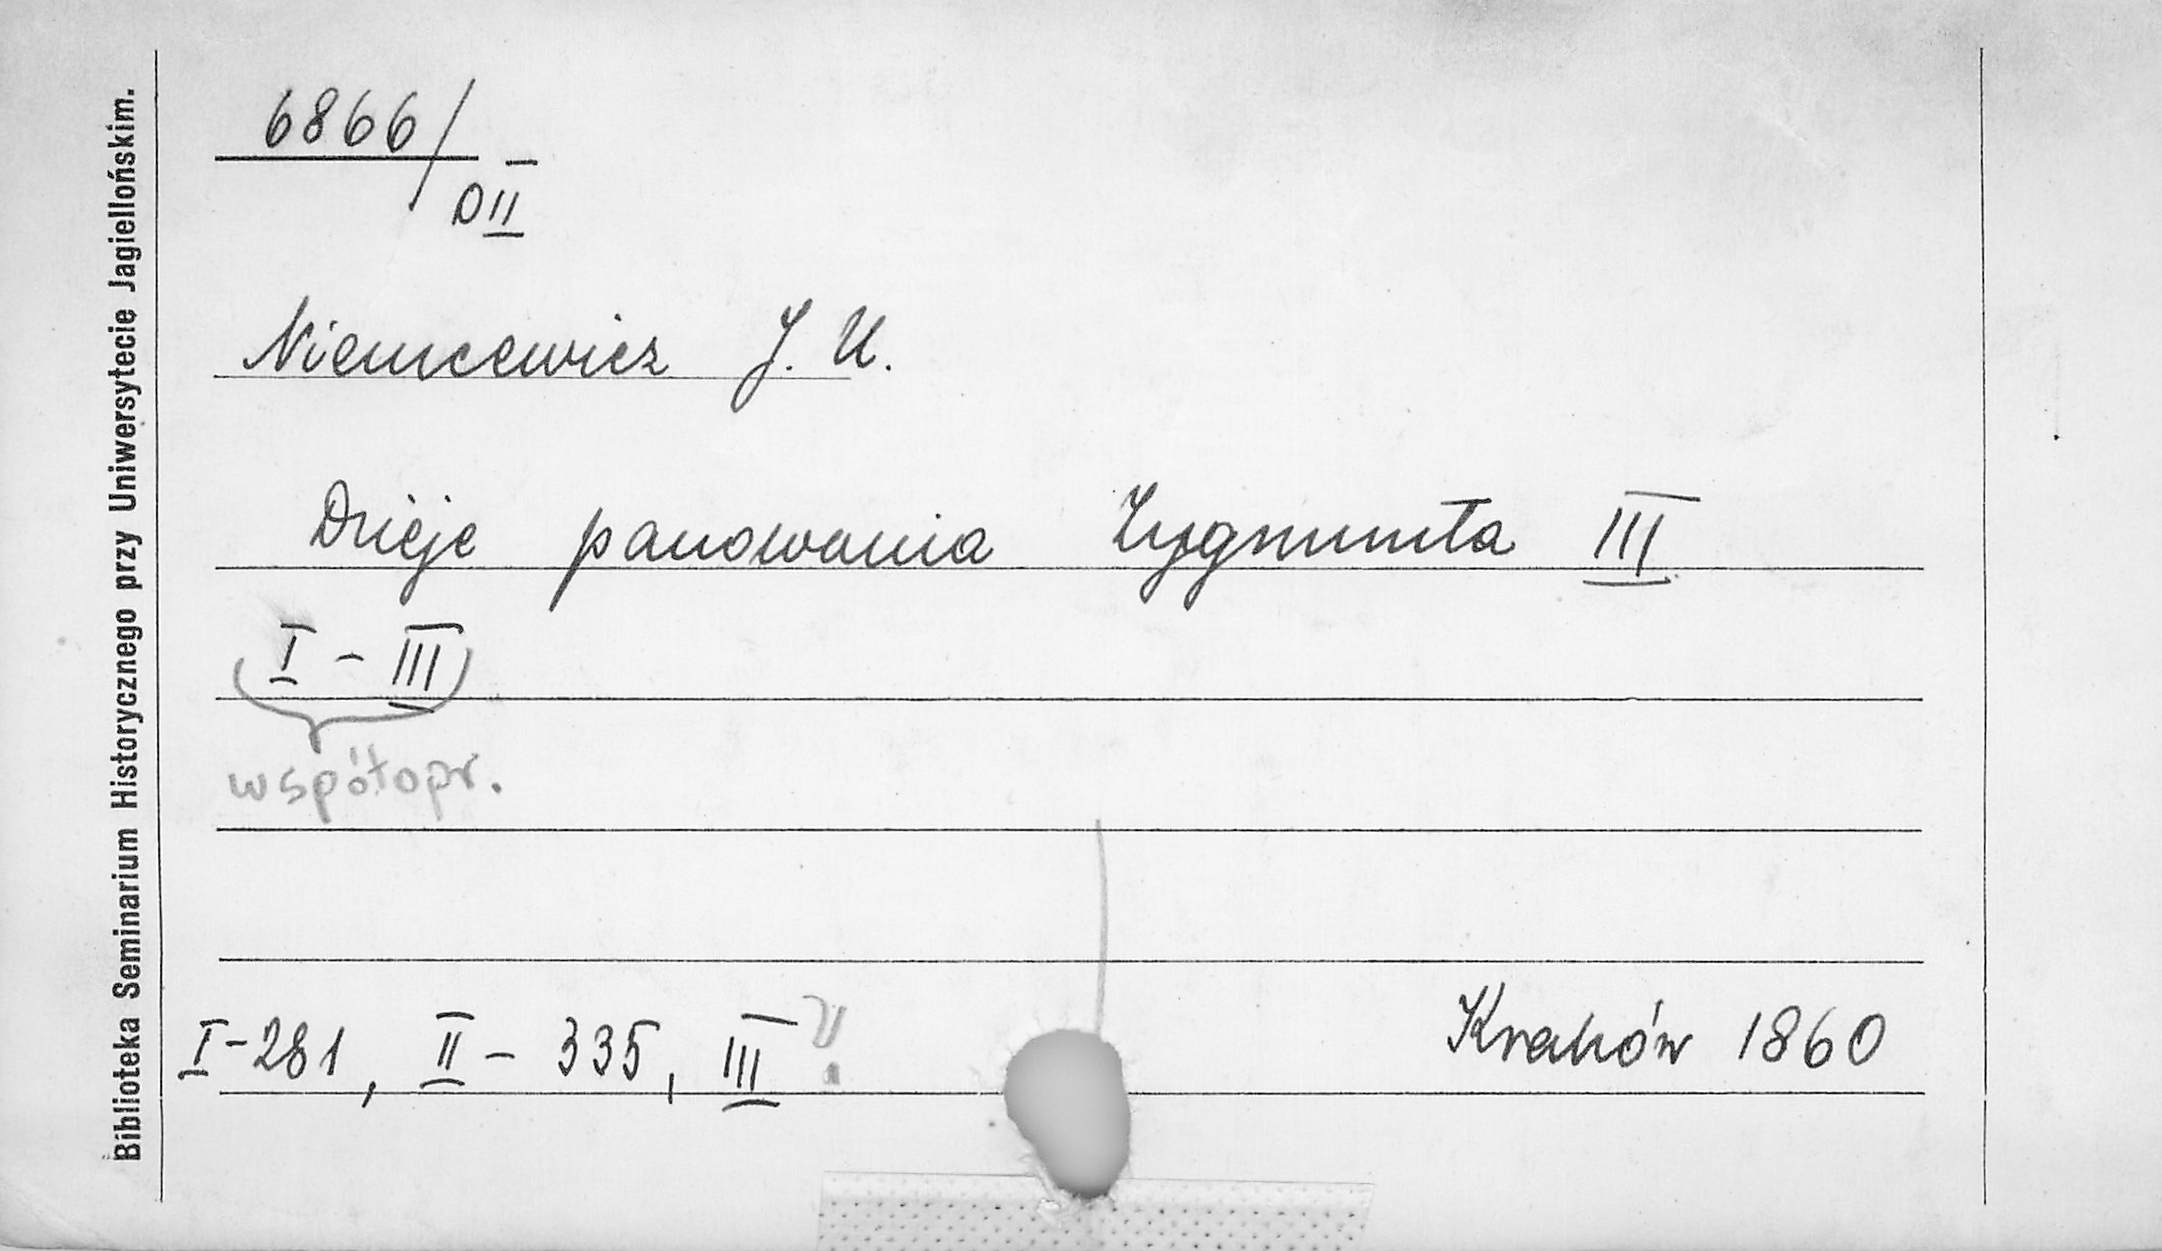 6866/
DII
Niemcewicz J. U.
Dzieje panowania Zygmunta III
I - III
współopr.
I-281, II - 335, III ?
Kraków 1860
Biblioteka Seminarium Historycznego przy Uniwersytecie Jagiellońskim.